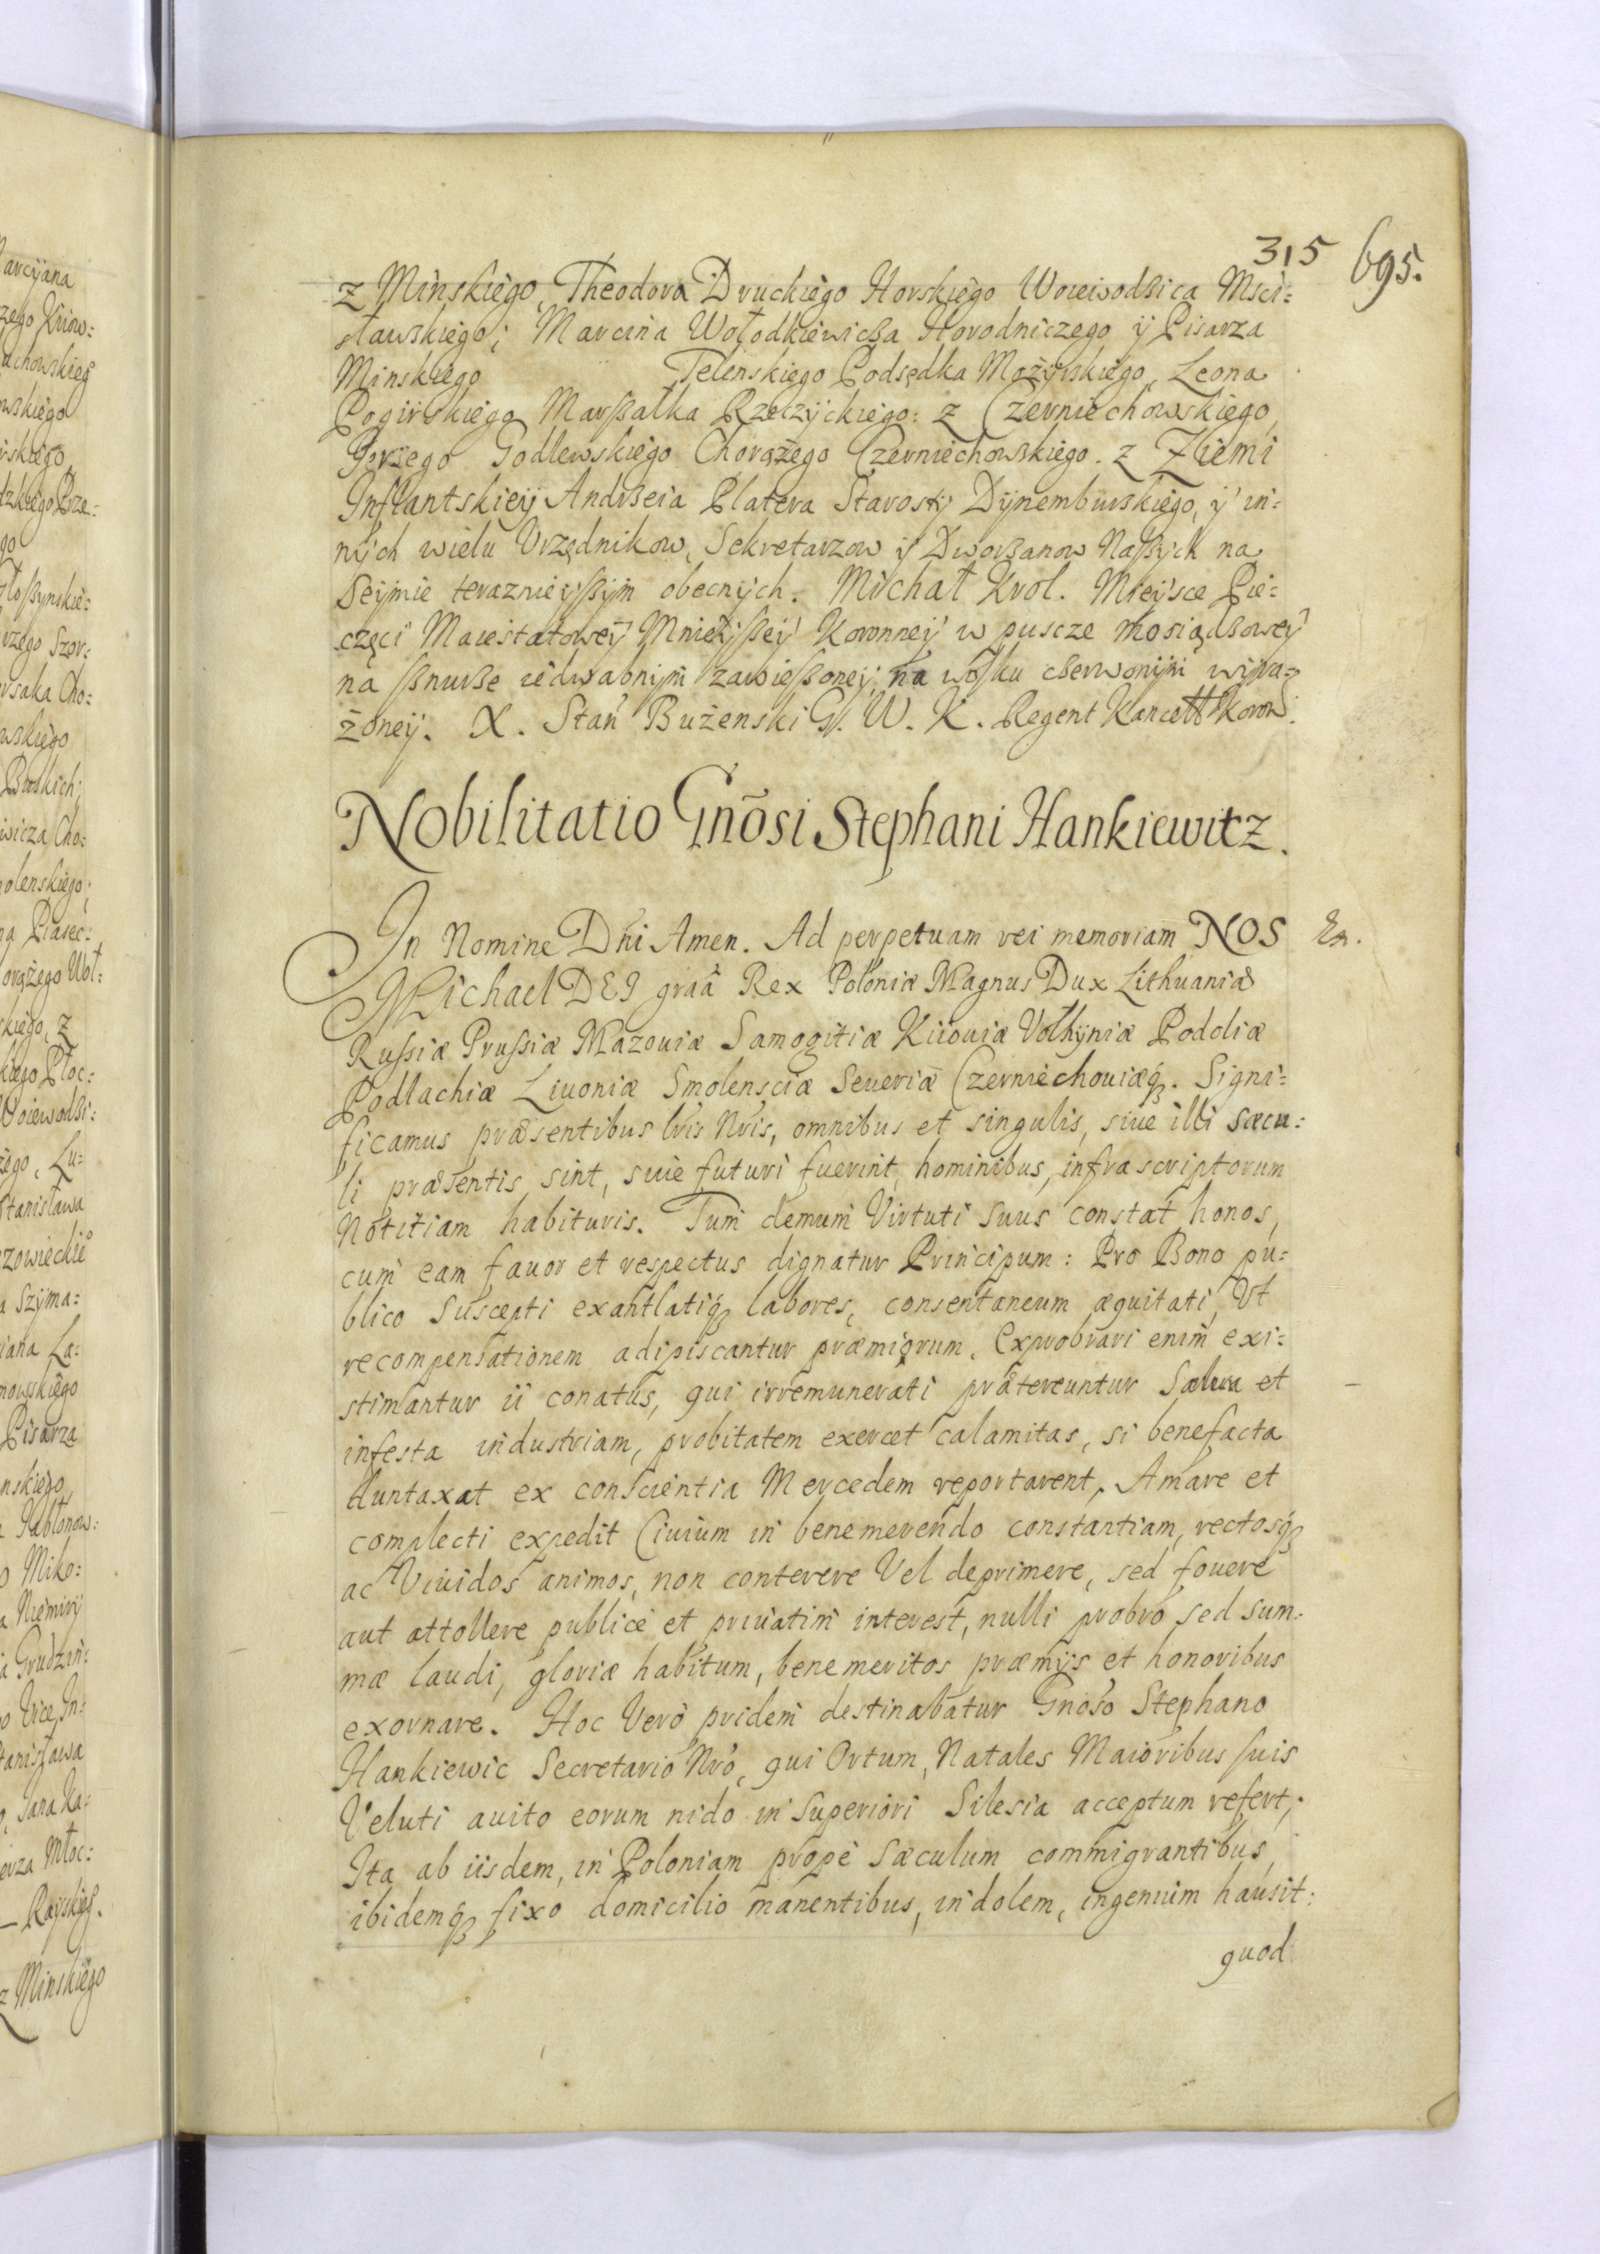 315 695.
z Minskiego, Theodora Druckiego Horskiego Woiewodzica Msci=
sławskiego; Marcina Wołodkiewicza Horodniczego ÿ Pisarza
Minskiego Telenskiego Podsędka Mozÿrskiego, Leona
Pogirskiego Marßałka Rzeczÿckiego: z Czerniechowskiego,
Jerzego Godlewskiego Chorążego Czerniechowskiego. z Ziemi
Inflantskieÿ Andrzeia Platera Starostÿ Dÿnemburskiego, ÿ in=
nÿch wielu Vrzędnikow, Sekretarzow ÿ Dworzanow Naßÿch na
Seÿmie teraznieÿßÿm obecnÿch. Michał Krol. Mieÿsce Pie=
częci Maiestatoweÿ Mnieÿßeÿ Koronneÿ w puscze mosiądzoweÿ
na ßnurze iedwabnÿm zawießoneÿ, na wosku czerwonÿm wÿra=
żoneÿ. X. Stan Bużenski G. W. K. Regent Kancell Koron.
Nobilitatio Gnõsi Stephani Hankiewitz.
In Nomine Dni Amen. Ad perpetuam rei memoriam NOS
Michael DEI graã Rex Poloniæ Magnus Dux Lithuaniæ
Russiæ Prussiæ Mazouiæ Samogitiæ Kiiouiæ Volhÿniæ Podoliæ
Podlachiæ Liuoniæ Smolensciæ Seueriæ Czerniechouiæq. Signi=
ficamus præsentibus lris Nris, omnibus et singulis, siue illi sæcu=
li præsentis sint, siue futuri fuerint, hominibus, infrascriptorum
Notitiam habituris. Tum demum Virtuti suus constat honos,
cum eam fauor et respectus dignatur Principum: Pro Bono pu=
blico suscepti exantlatiq labores, consentaneum æquitati, Vt
recompensationem adipiscantur præmiorum. Exprobrari enim exi=
stimantur ii conatus, qui irremunerati prætereuntur Sæua et
infesta industriam, probitatem exercet calamitas, si benefacta
duntaxat ex conscientia Mercedem reportarent, Amare et
complecti expedit Ciuium in benemerendo constantiam, rectosq
ac Viuidos animos, non conterere Vel deprimere, sed fouere
aut attollere publice et priuatim interest, nulli probro sed sum=
mæ laudi, gloriæ habitum, benemeritos præmÿs et honoribus
exornare. Hoc Vero pridem destinabatur Gnoso Stephano
Hankiewic Secretario Nro, qui Ortum, Natales Maioribus suis
Veluti auito eorum nido in Superiori Silesia acceptum refert,
Ita ab iisdem, in Poloniam prope sæculum commigrantibus,
ibidemq fixo domicilio manentibus, indolem, ingenium hausit:
quod